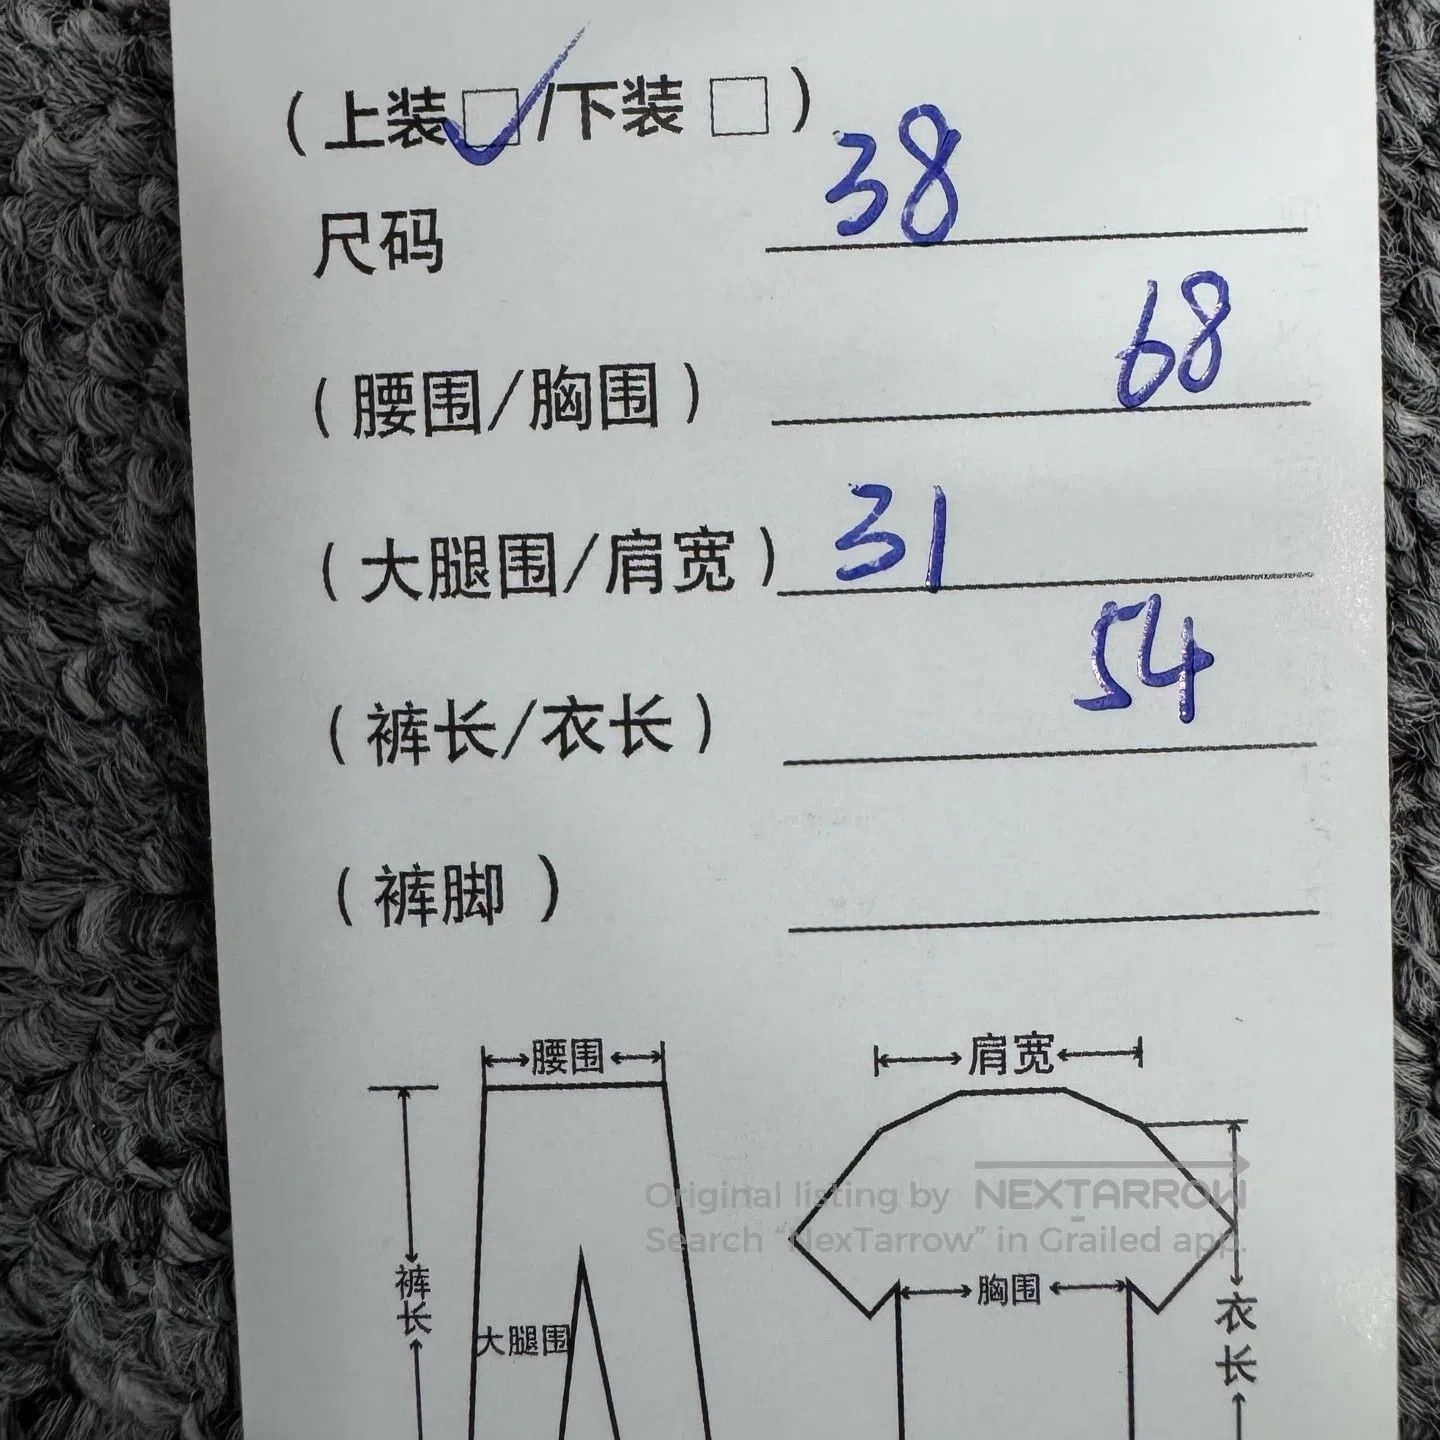 (上装□/下装□)
尺码 38
(腰围/胸围) 68
(大腿围/肩宽) 31
(裤长/衣长) 54
(裤脚)
腰围
肩宽
Original listing by NEXTARROW
Search “NexTarrow” in Grailed app.
裤长
大腿围
胸围
衣长